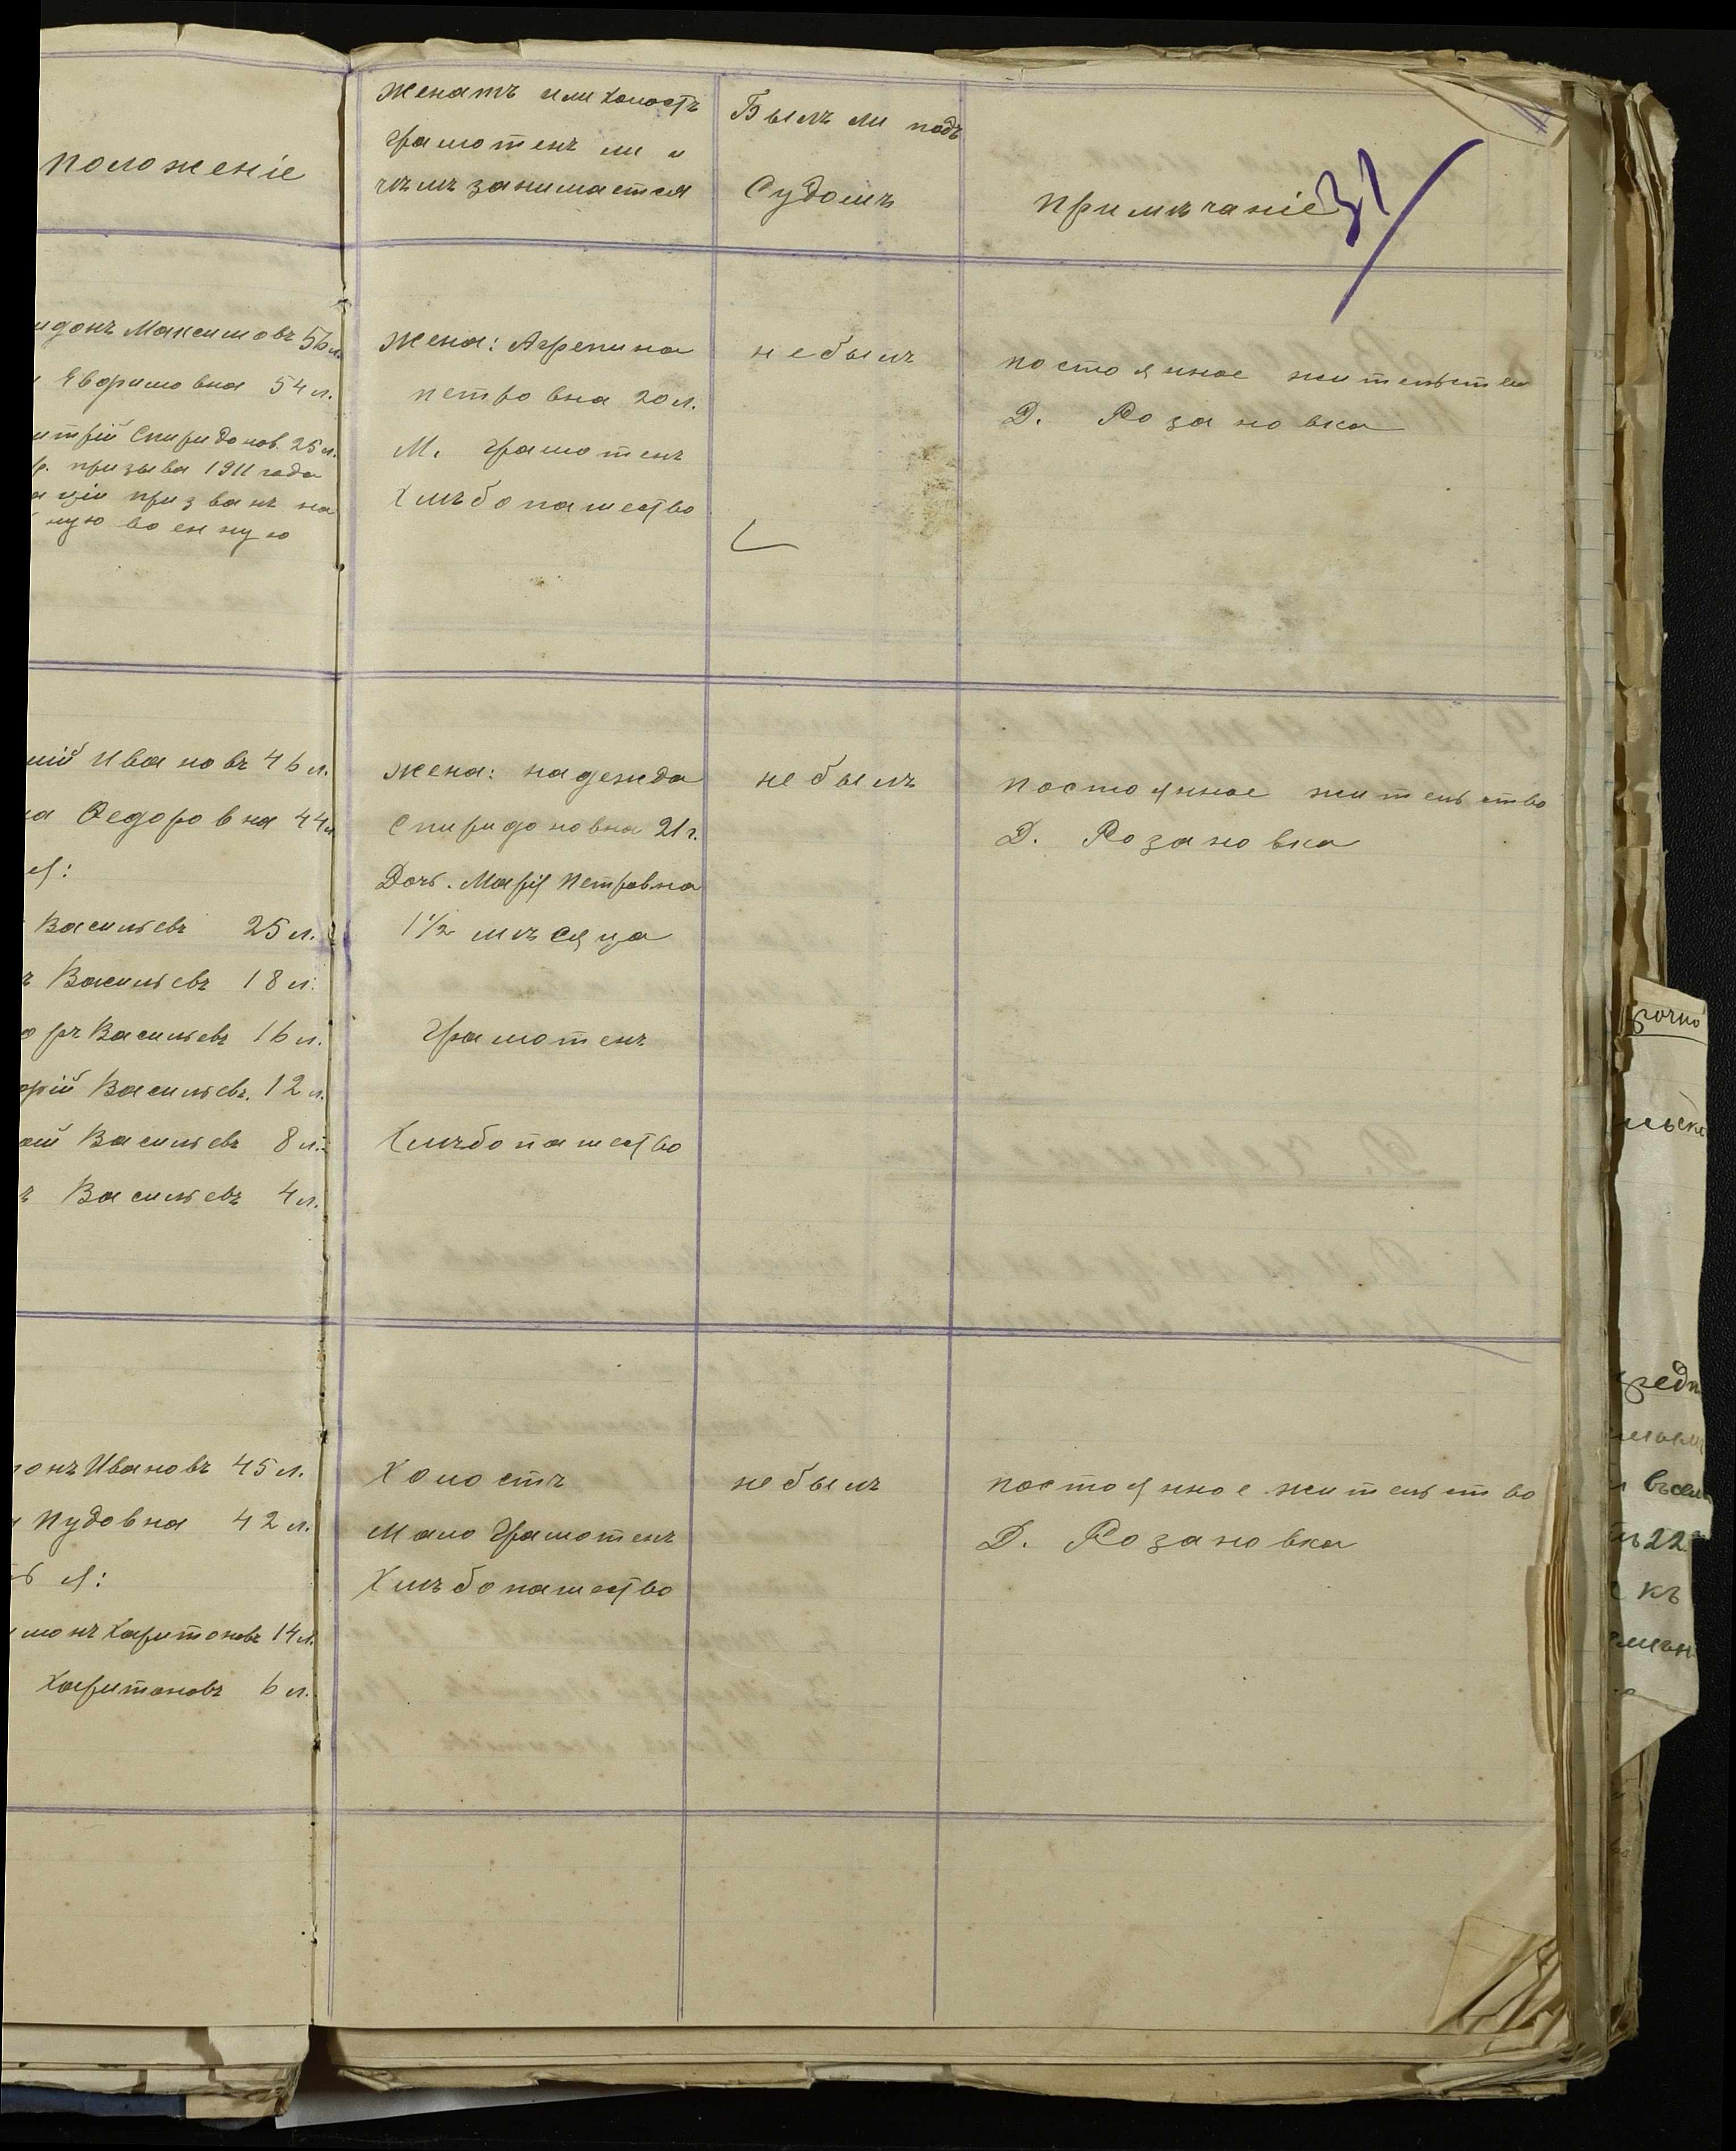 положеніе
Женатъ или холостъ
грамотенъ ли и
чѣмъ занимается
Былъ ли подъ
Судомъ
Примѣчаніе
31
идонъ Максимовъ 56 л.
Ефимовна 54 л.
итрій Спиридонов. 25 л.
р. призыва 1911 года
аціи призванъ на
ную военную
Жена: Агрепина
петровна 20 л.
М. грамотенъ
Хлѣбопашество
не былъ
постоянное жительство
Д. Розановка
лій Ивановъ 46 л.
на Ѳедоровна 44 л.
я:
Васильевъ 25 л.
ъ Васильевъ 18 л.
оръ Васильевъ 16 л.
орій Васильевъ. 12 л.
ай Васильевъ 8 л.
ъ Васильевъ 4 л.
Жена: надежда
Спиридоновна 21 г.
Дочь. Марія Петровна
1 1/2 мѣсяца
Грамотенъ
Хлѣбопашество
не былъ
постоянное жительство
Д. Розановка
тонъ Ивановъ 45 л.
Пудовна 42 л.
ья:
монъ Харитоновъ 14 л.
Харитоновъ 6 л.
Холостъ
Мало Грамотенъ
Хлѣбопашество
не былъ
постоянное жительство
Д. Розановка
рочно
льск
редп
22
къ